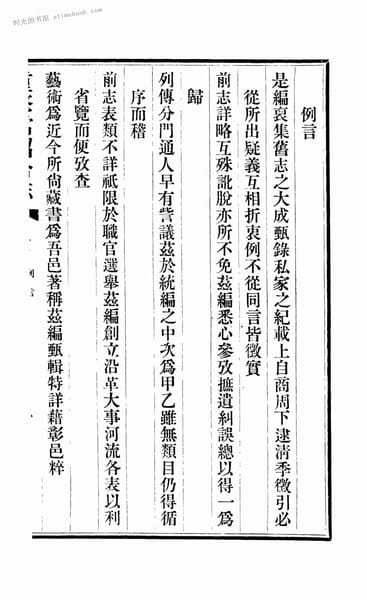 时光图书馆 atimebook.com
例言
是編裒集舊志之大成甄錄私家之紀載上自商周下逮淸季徵引必
從所出疑義互相折衷例不從同言皆徵實
前志詳略互殊訛脫亦所不免茲編悉心參攷摭遺糾誤總以得一爲
歸
列傳分門通人早有訾議茲於統編之中次爲甲乙雖無類目仍得循
序而稽
前志表類不詳祇限於職官選舉茲編創立沿革大事河流各表以利
省覽而便攷查
藝術爲近今所尙藏書爲吾邑著稱茲編甄輯特詳藉彰邑粹
例言